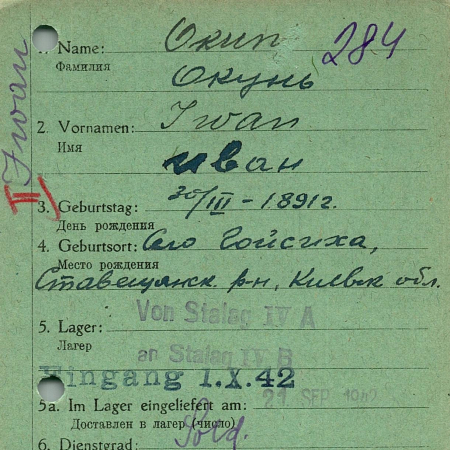 1. Name: Окип 284
Фамилия Окунь
2. Vornamen: Iwan
Имя
Иван
Iwan
III
3. Geburtstag: 20/III - 1891 г.
День рождения
4. Geburtsort: Село Гойсиха,
Место рождения
Ставещянск. р-н, Киевск обл.
Von Stalag IV A
5. Lager:
Лагер
an Stalag IV B
Eingang 1.X.42
5a. Im Lager eingeliefert am: 21 SEP 1942
Доставлен в лагер (число)
6. Dienstgrad: Sold.